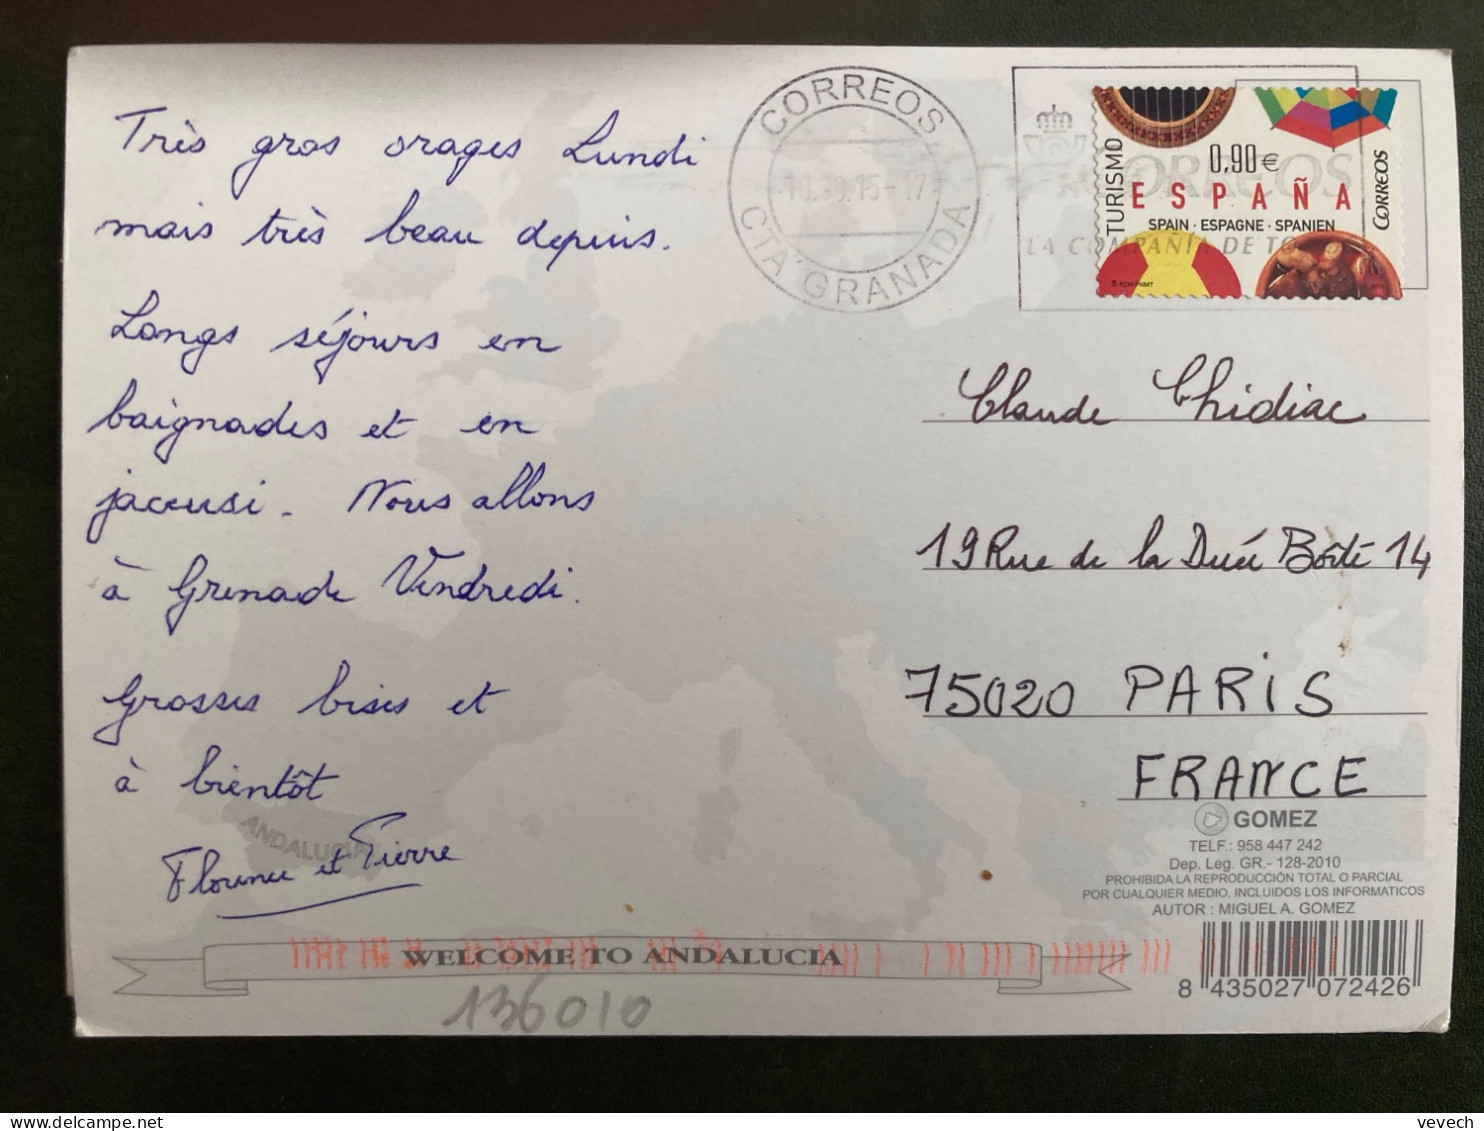 Très gros orages Lundi
mais très beau depuis.
Longs séjours en
baignades et en
jaccusi. Nous allons
à Grenade Vendredi.
Grosses bises et
à bientôt
Florence et Pierre
ANDALUCIA
WELCOME TO ANDALUCIA
136010
CORREOS
15-17
CTA GRANADA
CORREOS
LA COMPAÑÍA DE
TURISMO
0,90€
ESPAÑA
SPAIN · ESPAGNE · SPANIEN
CORREOS
Claude Chidiac
19 Rue de la Duée Boîte 14
75020 PARIS
FRANCE
GOMEZ
TELF.: 958 447 242
Dep. Leg. GR.- 128-2010
PROHIBIDA LA REPRODUCCIÓN TOTAL O PARCIAL
POR CUALQUIER MEDIO, INCLUIDOS LOS INFORMATICOS
AUTOR : MIGUEL A. GOMEZ
8 435027 072426
vevech